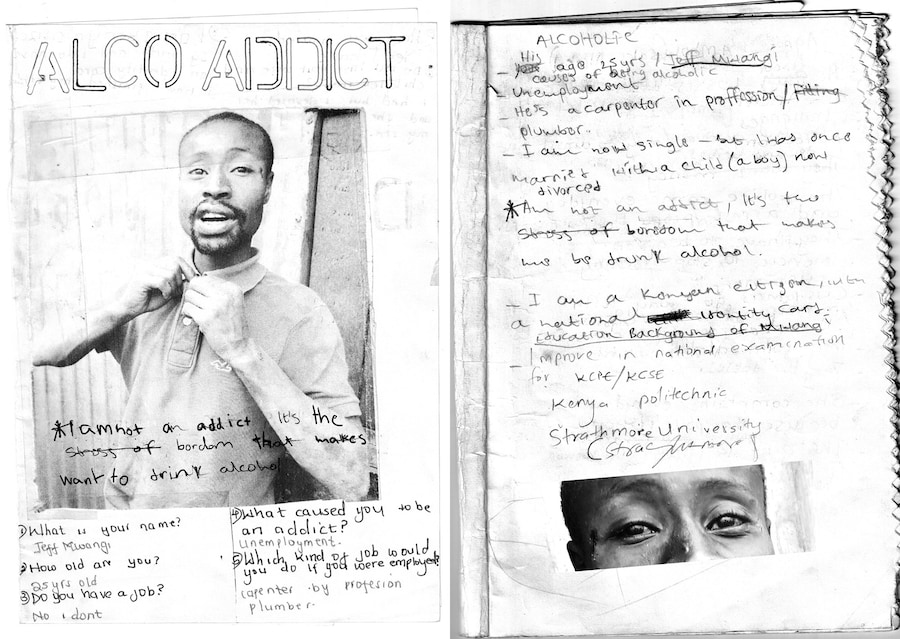 ALCO ADDICT
*I am not an addict It's the
stress of bordom that makes
want to drink alcohol
①What is your name?
Jeff Mwangi
②How old are you?
25 yrs old
③Do you have a job?
No i dont
④What caused you to be
an addict?
Unemployment.
⑤Which kind of job would
you do if you were employed?
carpenter by profesion
plumber.
ALCOHOLIC
His
- age 25 yrs / Jeff Mwangi
causes of being alcoholic
- Unemployment
- He's a carpenter in proffession/filling
plumber.
- I am now single - but I was once
married with a child (a boy) now
divorced
*Am not an addict, It's the
stress of boredom that makes
me be drunk alcohol.
- I am a Kenyan citizen, with
a national identity card.
Education Background of Mwangi
- Improve in national examination
for KCPE/KCSE
Kenya politechnic
Strathmore University